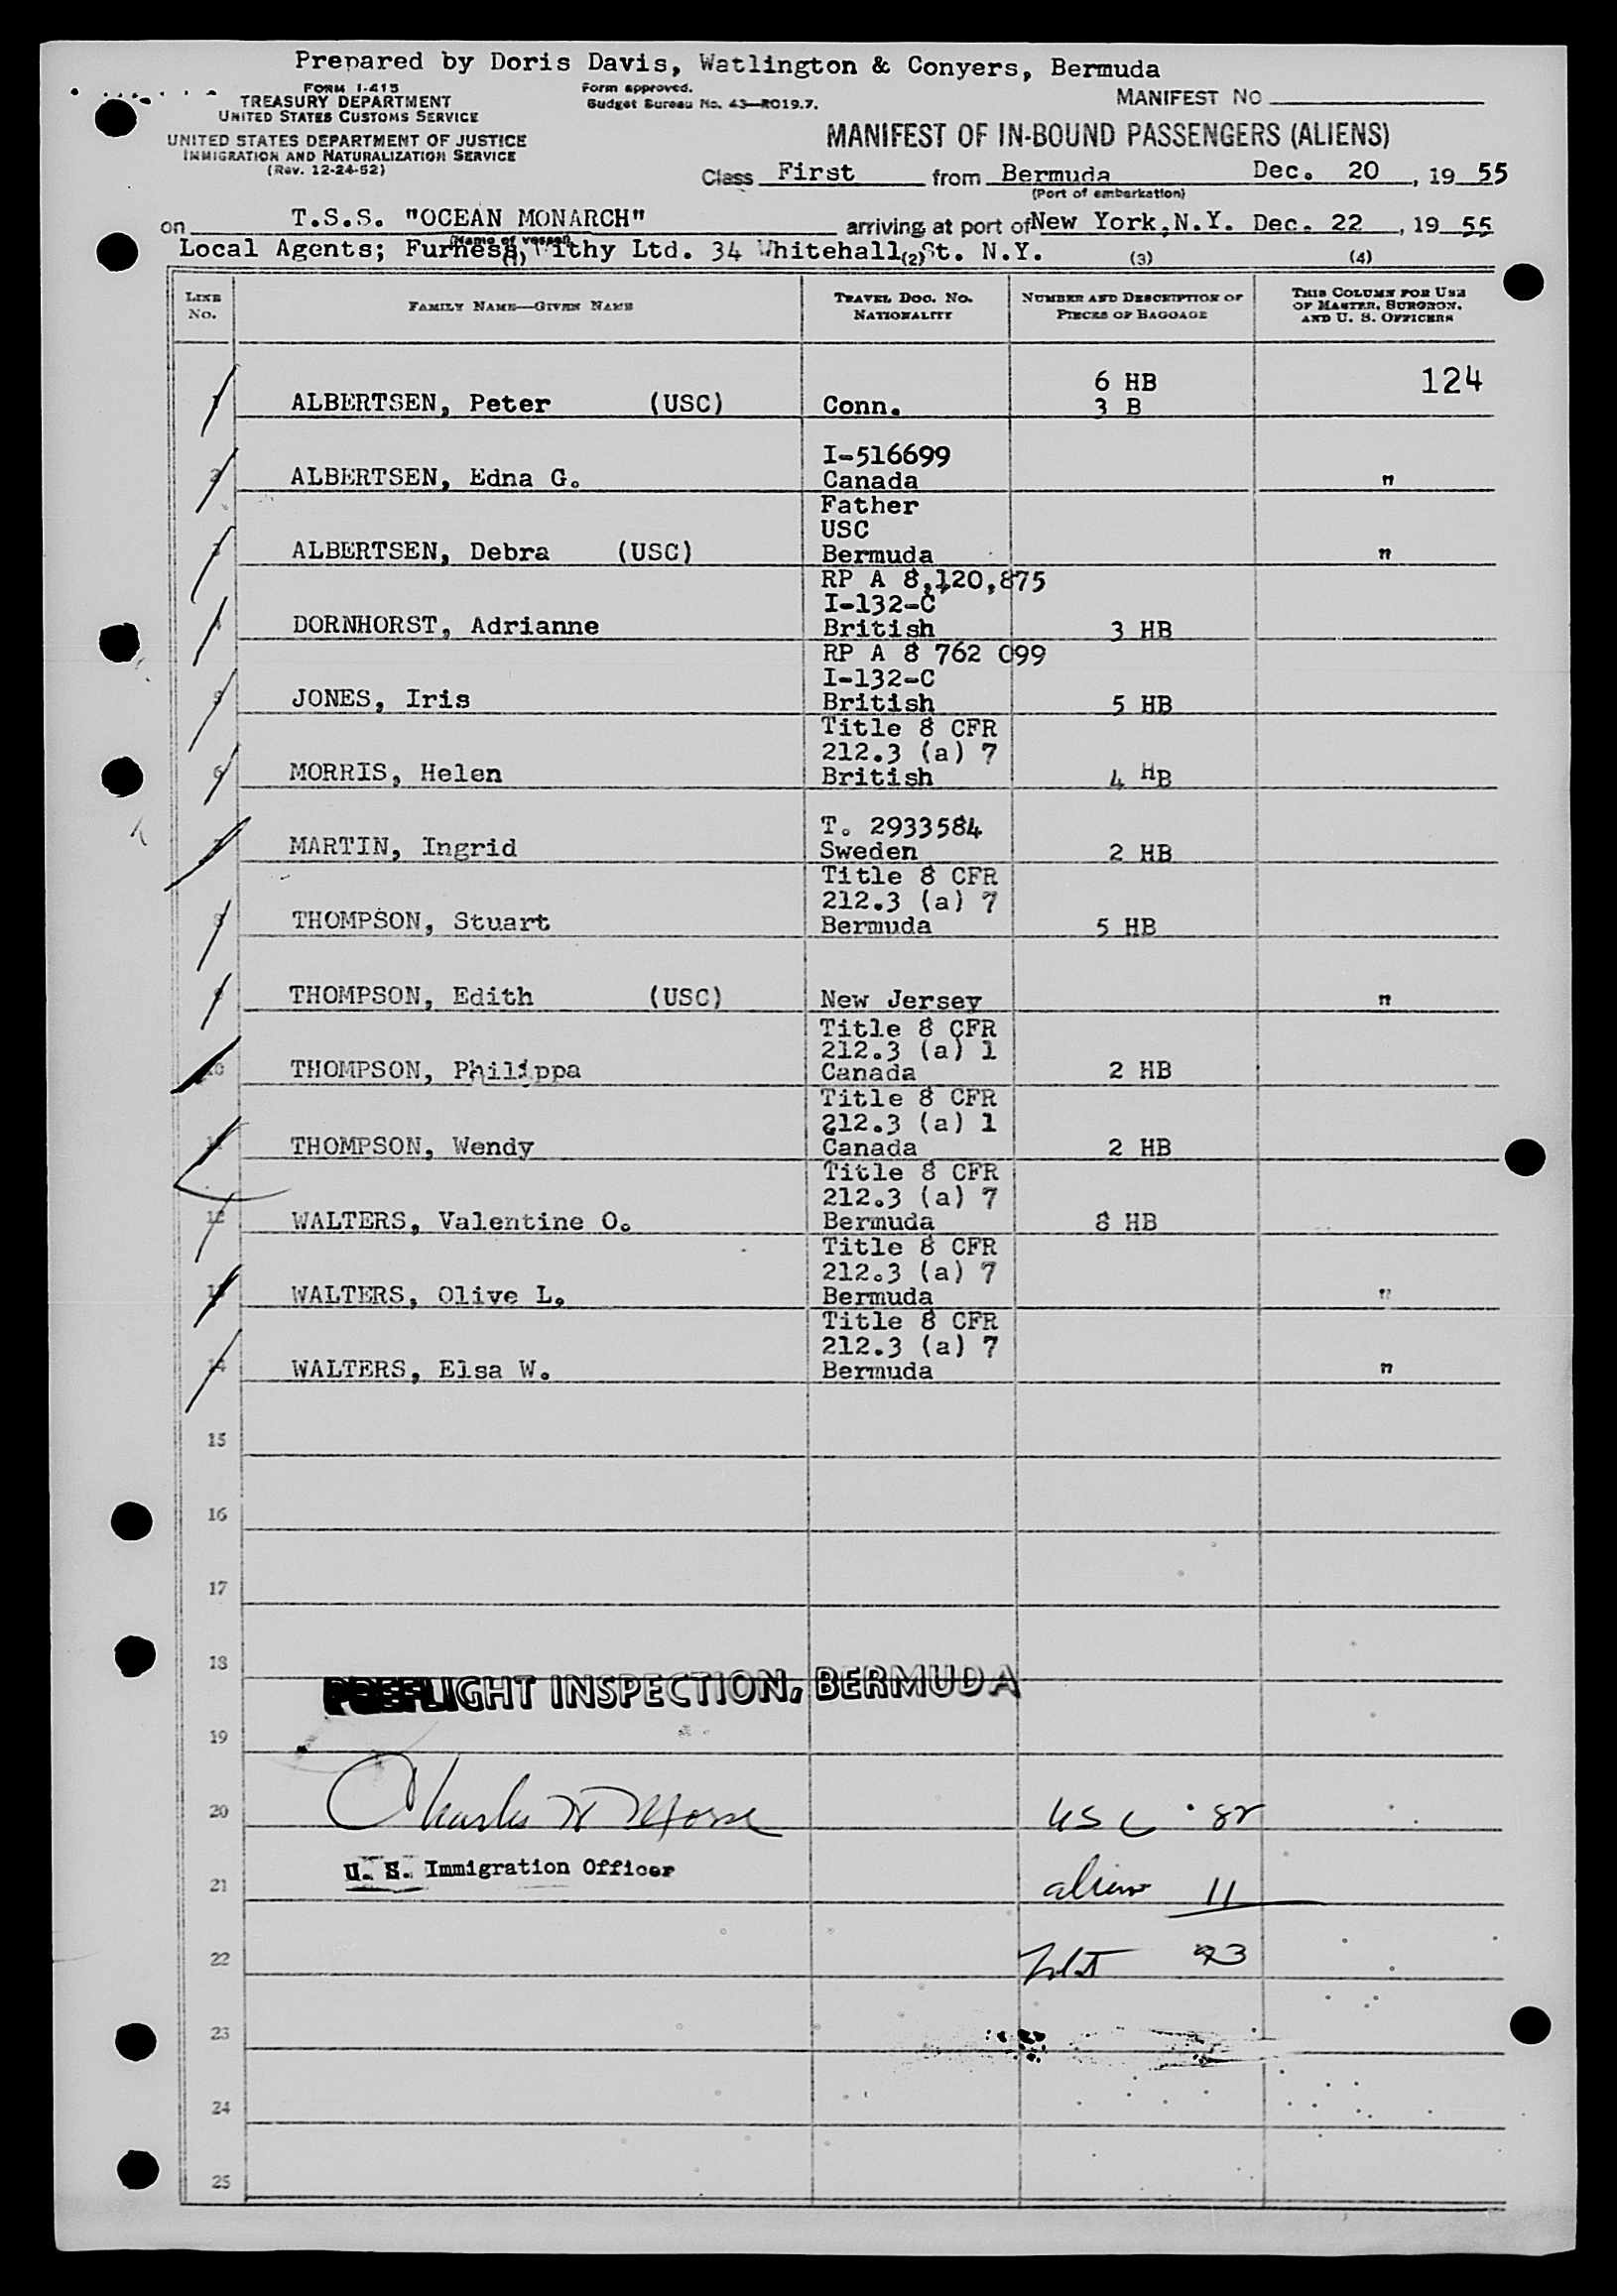 Prepared by Doris Davis, Watlington & Conyers, Bermuda
FORM I-415
TREASURY DEPARTMENT
UNITED STATES CUSTOMS SERVICE
UNITED STATES DEPARTMENT OF JUSTICE
IMMIGRATION AND NATURALIZATION SERVICE
(Rev. 12-24-52)
Form approved.
Budget Bureau No. 43—R019.7.
MANIFEST NO
MANIFEST OF IN-BOUND PASSENGERS (ALIENS)
Class First from Bermuda Dec. 20, 19 55
(Port of embarkation)
on T.S.S. "OCEAN MONARCH" arriving at port of New York, N.Y. Dec. 22, 19 55
(Name of vessel)
Local Agents; Furness, Withy Ltd. 34 Whitehall St. N.Y.
(1) (2) (3) (4)
LINE No. FAMILY NAME—GIVEN NAME TRAVEL DOC. NO. NATIONALITY NUMBER AND DESCRIPTION OF PIECES OF BAGGAGE THIS COLUMN FOR USE OF MASTER, SURGEON, AND U. S. OFFICERS
6 HB 124
1 ALBERTSEN, Peter (USC) Conn. 3 B
I-516699
2 ALBERTSEN, Edna G. Canada "
Father
USC
3 ALBERTSEN, Debra (USC) Bermuda "
RP A 8,120,875
I-132-C
4 DORNHORST, Adrianne British 3 HB
RP A 8 762 099
I-132-C
5 JONES, Iris British 5 HB
Title 8 CFR
212.3 (a) 7
6 MORRIS, Helen British 4 HB
T. 2933584
7 MARTIN, Ingrid Sweden 2 HB
Title 8 CFR
212.3 (a) 7
8 THOMPSON, Stuart Bermuda 5 HB
9 THOMPSON, Edith (USC) New Jersey "
Title 8 CFR
212.3 (a) 1
10 THOMPSON, Philippa Canada 2 HB
Title 8 CFR
212.3 (a) 1
11 THOMPSON, Wendy Canada 2 HB
Title 8 CFR
212.3 (a) 7
12 WALTERS, Valentine O. Bermuda 8 HB
Title 8 CFR
212.3 (a) 7
13 WALTERS, Olive L. Bermuda "
Title 8 CFR
212.3 (a) 7
14 WALTERS, Elsa W. Bermuda "
15
16
17
18
PREFLIGHT INSPECTION, BERMUDA
19
20 Charles W Morse USC 82
U. S. Immigration Officer
21 aliens 11
22 93
23
24
25